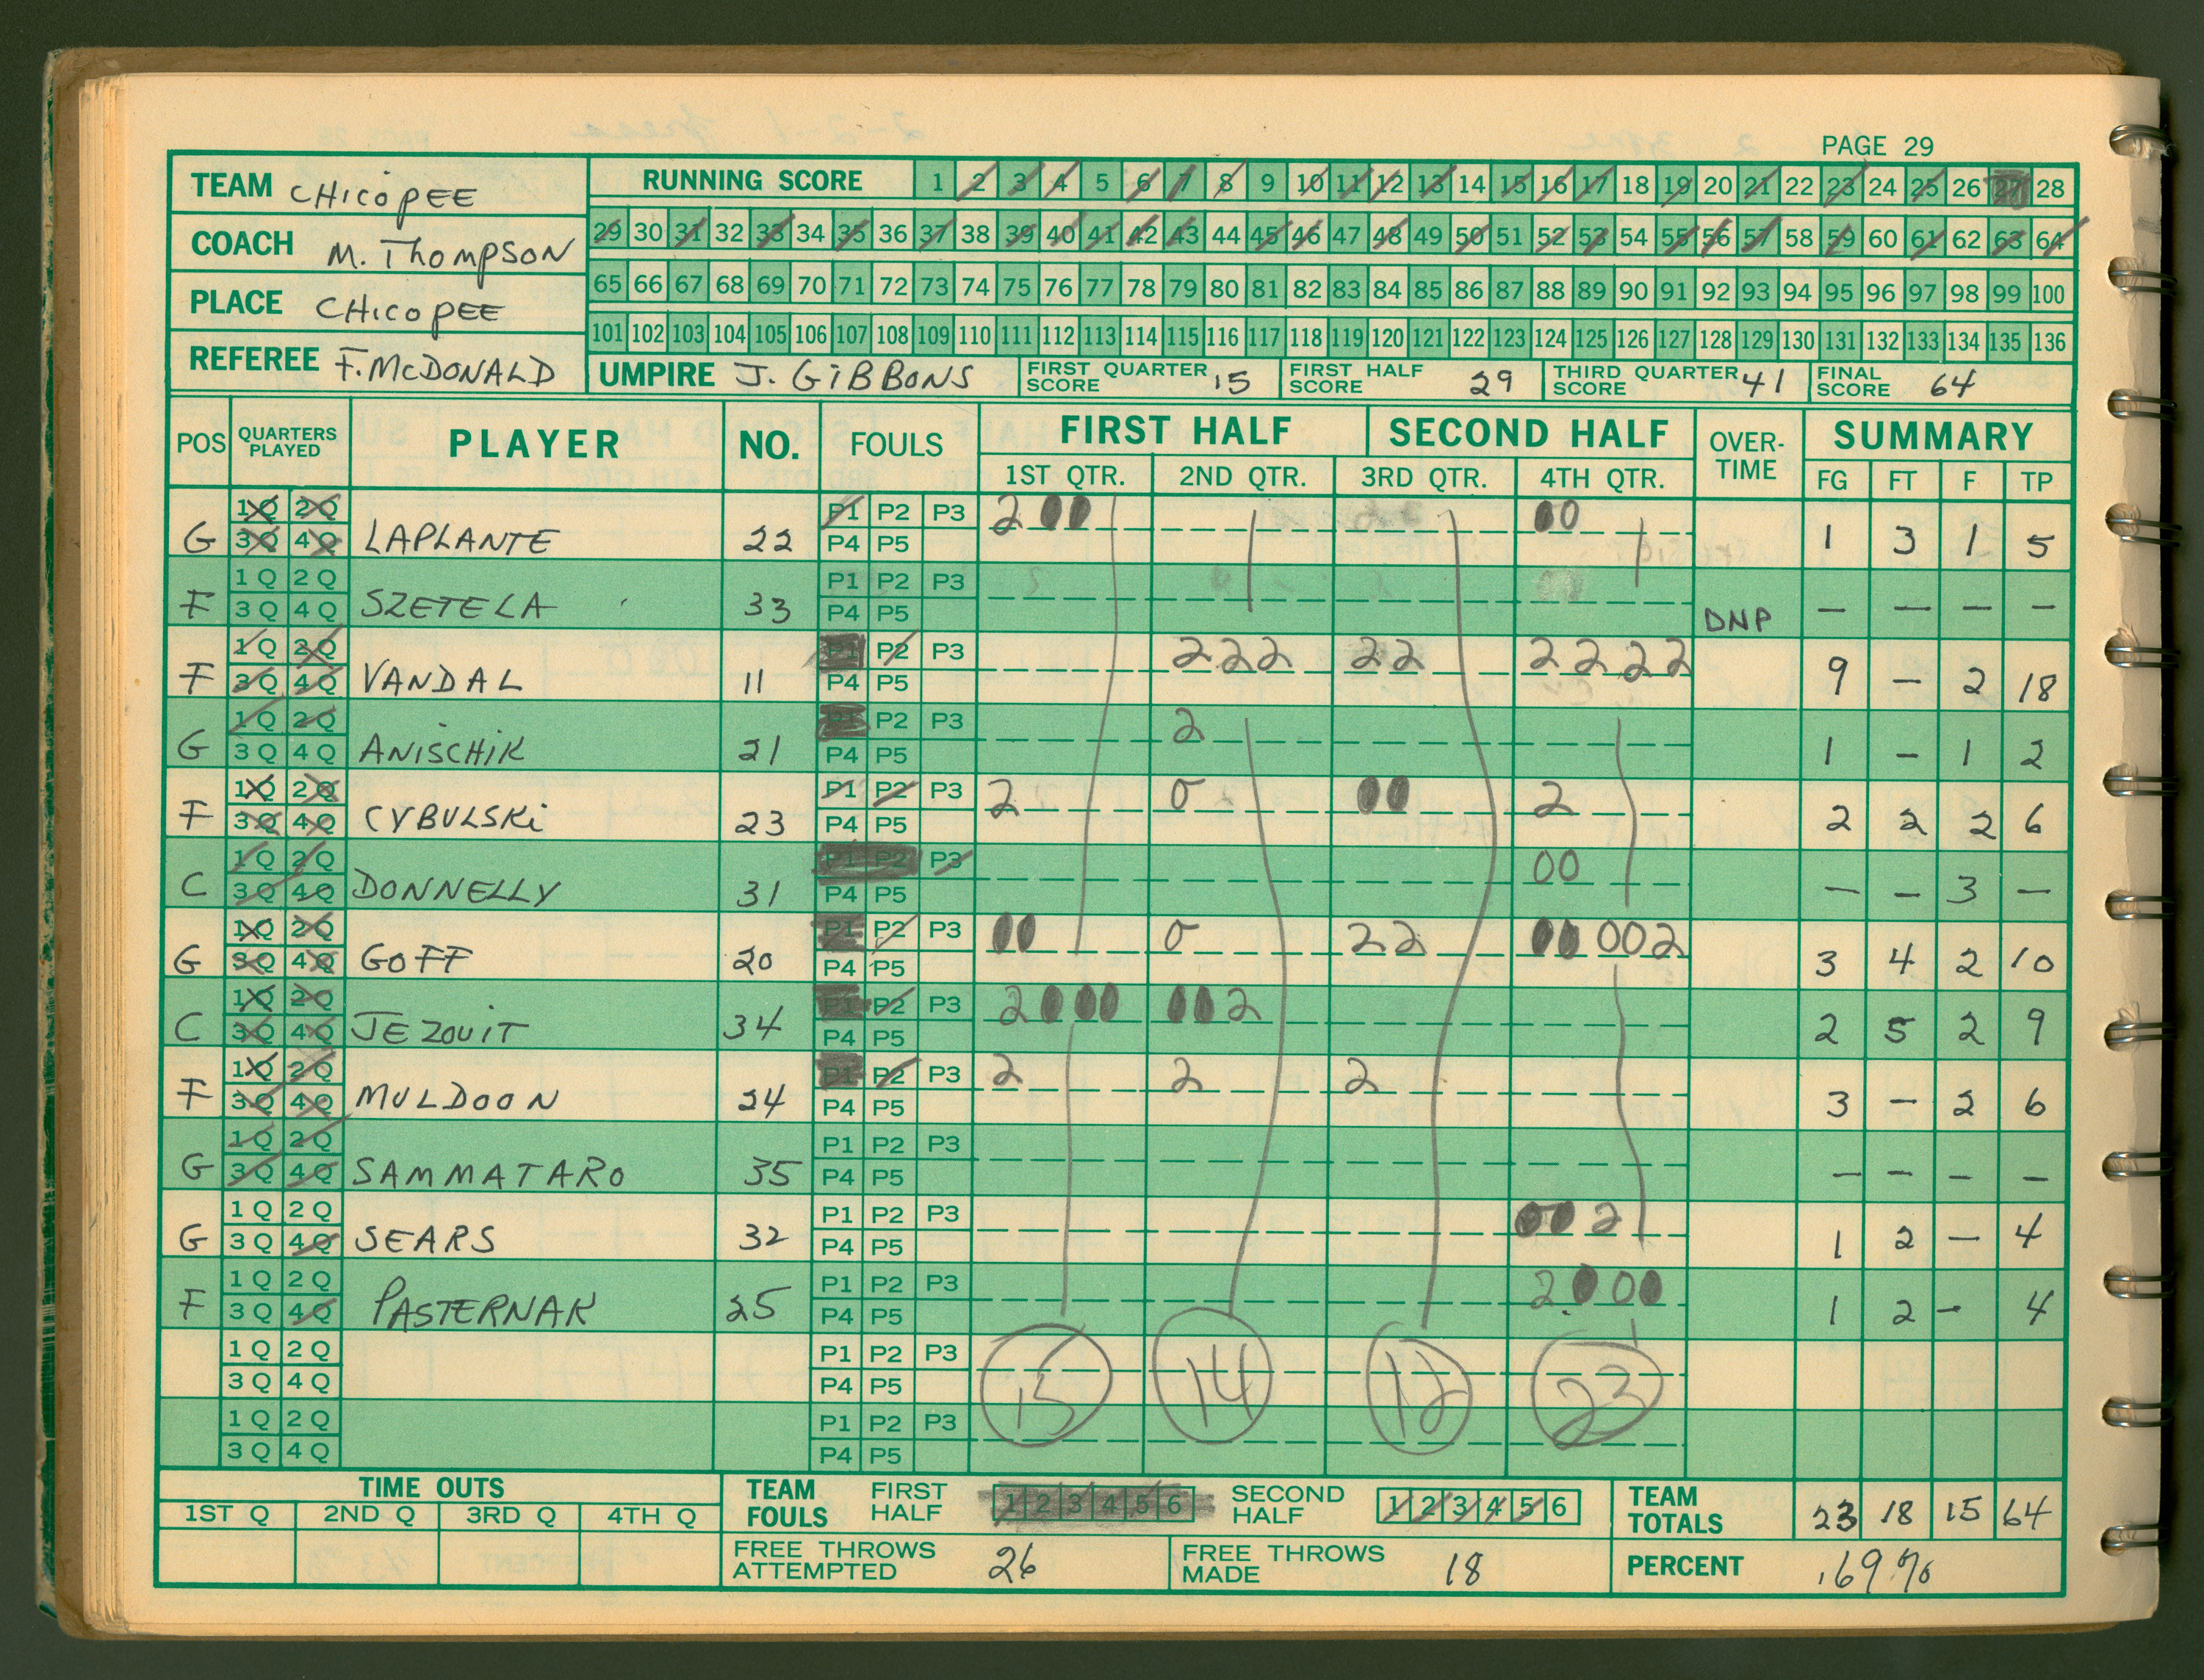 PAGE 29
TEAM CHICOPEE
RUNNING SCORE 1 2 3 4 5 6 7 8 9 10 11 12 13 14 15 16 17 18 19 20 21 22 23 24 25 26 27 28
COACH M. THOMPSON
29 30 31 32 33 34 35 36 37 38 39 40 41 42 43 44 45 46 47 48 49 50 51 52 53 54 55 56 57 58 59 60 61 62 63 64
PLACE CHICOPEE
65 66 67 68 69 70 71 72 73 74 75 76 77 78 79 80 81 82 83 84 85 86 87 88 89 90 91 92 93 94 95 96 97 98 99 100
101 102 103 104 105 106 107 108 109 110 111 112 113 114 115 116 117 118 119 120 121 122 123 124 125 126 127 128 129 130 131 132 133 134 135 136
REFEREE F. McDONALD UMPIRE J. GIBBONS FIRST QUARTER SCORE 15 FIRST HALF SCORE 29 THIRD QUARTER SCORE 41 FINAL SCORE 64
POS QUARTERS PLAYED PLAYER NO. FOULS FIRST HALF SECOND HALF OVER-TIME SUMMARY
1ST QTR. 2ND QTR. 3RD QTR. 4TH QTR. FG FT F TP
1Q 2Q P1 P2 P3 2 0 0 0 0
G 3Q 4Q LAPLANTE 22 P4 P5 1 3 1 5
1Q 2Q P1 P2 P3
F 3Q 4Q SZETELA 33 P4 P5 DNP — — — —
1Q 2Q P1 P2 P3 2 2 2 2 2 2 2 2 2
F 3Q 4Q VANDAL 11 P4 P5 9 — 2 18
1Q 2Q P1 P2 P3 2
G 3Q 4Q ANISCHIK 21 P4 P5 1 — 1 2
1Q 2Q P1 P2 P3 2 0 0 0 2
F 3Q 4Q CYBULSKI 23 P4 P5 2 2 2 6
1Q 2Q P1 P2 P3 0 0
C 3Q 4Q DONNELLY 31 P4 P5 — — 3 —
1Q 2Q P1 P2 P3 0 0 0 2 2 0 0 0 0 2
G 3Q 4Q GOFF 20 P4 P5 3 4 2 10
1Q 2Q P1 P2 P3 2 0 0 0 0 0 2
C 3Q 4Q JEZOUIT 34 P4 P5 2 5 2 9
1Q 2Q P1 P2 P3 2 2 2
F 3Q 4Q MULDOON 24 P4 P5 3 — 2 6
1Q 2Q P1 P2 P3
G 3Q 4Q SAMMATARO 35 P4 P5 — — — —
1Q 2Q P1 P2 P3 0 0 2
G 3Q 4Q SEARS 32 P4 P5 1 2 — 4
1Q 2Q P1 P2 P3 2 0 0 0
F 3Q 4Q PASTERNAK 25 P4 P5 1 2 — 4
1Q 2Q P1 P2 P3
3Q 4Q P4 P5 15 14 12 23
1Q 2Q P1 P2 P3
3Q 4Q P4 P5
TIME OUTS TEAM FOULS FIRST HALF 1 2 3 4 5 6 SECOND HALF 1 2 3 4 5 6 TEAM TOTALS 23 18 15 64
1ST Q 2ND Q 3RD Q 4TH Q
FREE THROWS ATTEMPTED 26 FREE THROWS MADE 18 PERCENT .69%